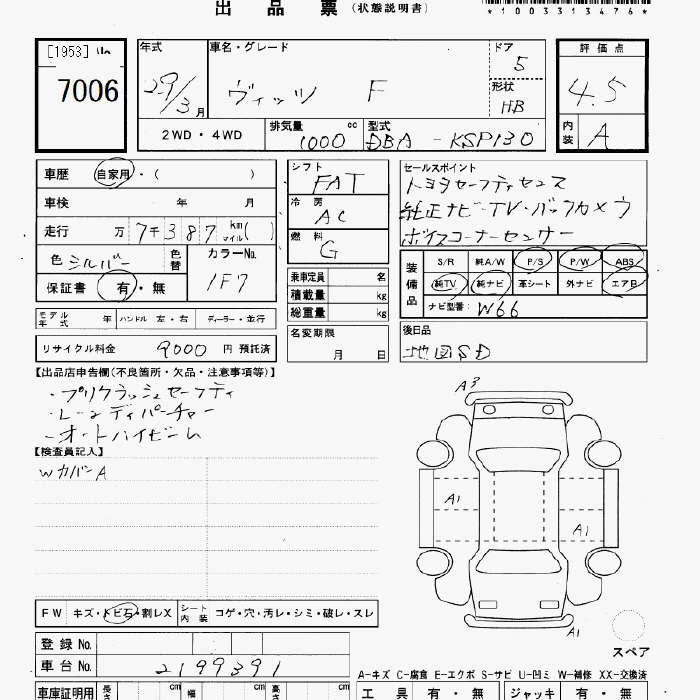 出品票（状態説明書）
*1003313476*
[1953]
7006
年式 29/3月
車名・グレード ヴィッツ F
ドア 5
形状 HB
2WD・4WD
排気量 1000 cc
型式 DBA-KSP130
評価点 4.5
内装 A
車歴 自家用・（ ）
車検 年 月
走行 万 7千387 km マイル( )
色 シルバー 色替
カラーNo. 1F7
保証書 有・無
シフト FAT
冷房 AC
燃料 G
乗車定員 名
積載量 kg
総重量 kg
セールスポイント
トヨタセーフティセンス
純正ナビ・TV・バックカメラ
ボイスコーナーセンサー
装備品 S/R 純A/W P/S P/W ABS
純TV 純ナビ 革シート 外ナビ エアB
ナビ型番: W66
モデル年式 年 ハンドル 左・右 ディーラー・並行
リサイクル料金 9000 円 預託済
名変期限 月 日
後日品
地図SD
【出品店申告欄(不良箇所・欠品・注意事項等)】
・プリクラッシュセーフティ
・レーンディパーチャー
・オートハイビーム
【検査員記入】
Wカバン A
A1
A1
A1
スペア
FW キズ・トビ石・割レX シート内装 コゲ・穴・汚レ・シミ・破レ・スレ
登録No.
車台No. 2199391
A-キズ C-腐食 E-エクボ S-サビ U-凹ミ W-補修 XX-交換済
車庫証明用 長さ cm 幅 cm 高さ cm
工具 有・無 ジャッキ 有・無